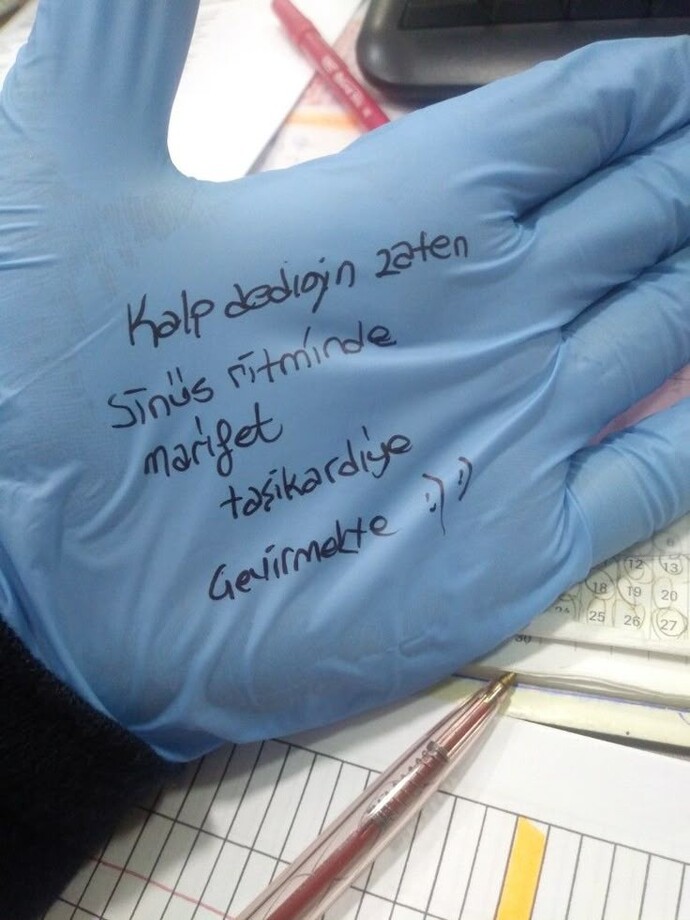 Kalp dediğin zaten
Sinüs ritminde
marifet
taşikardiye
Çevirmekte :))
12 13
18 19 20
24 25 26 27
30